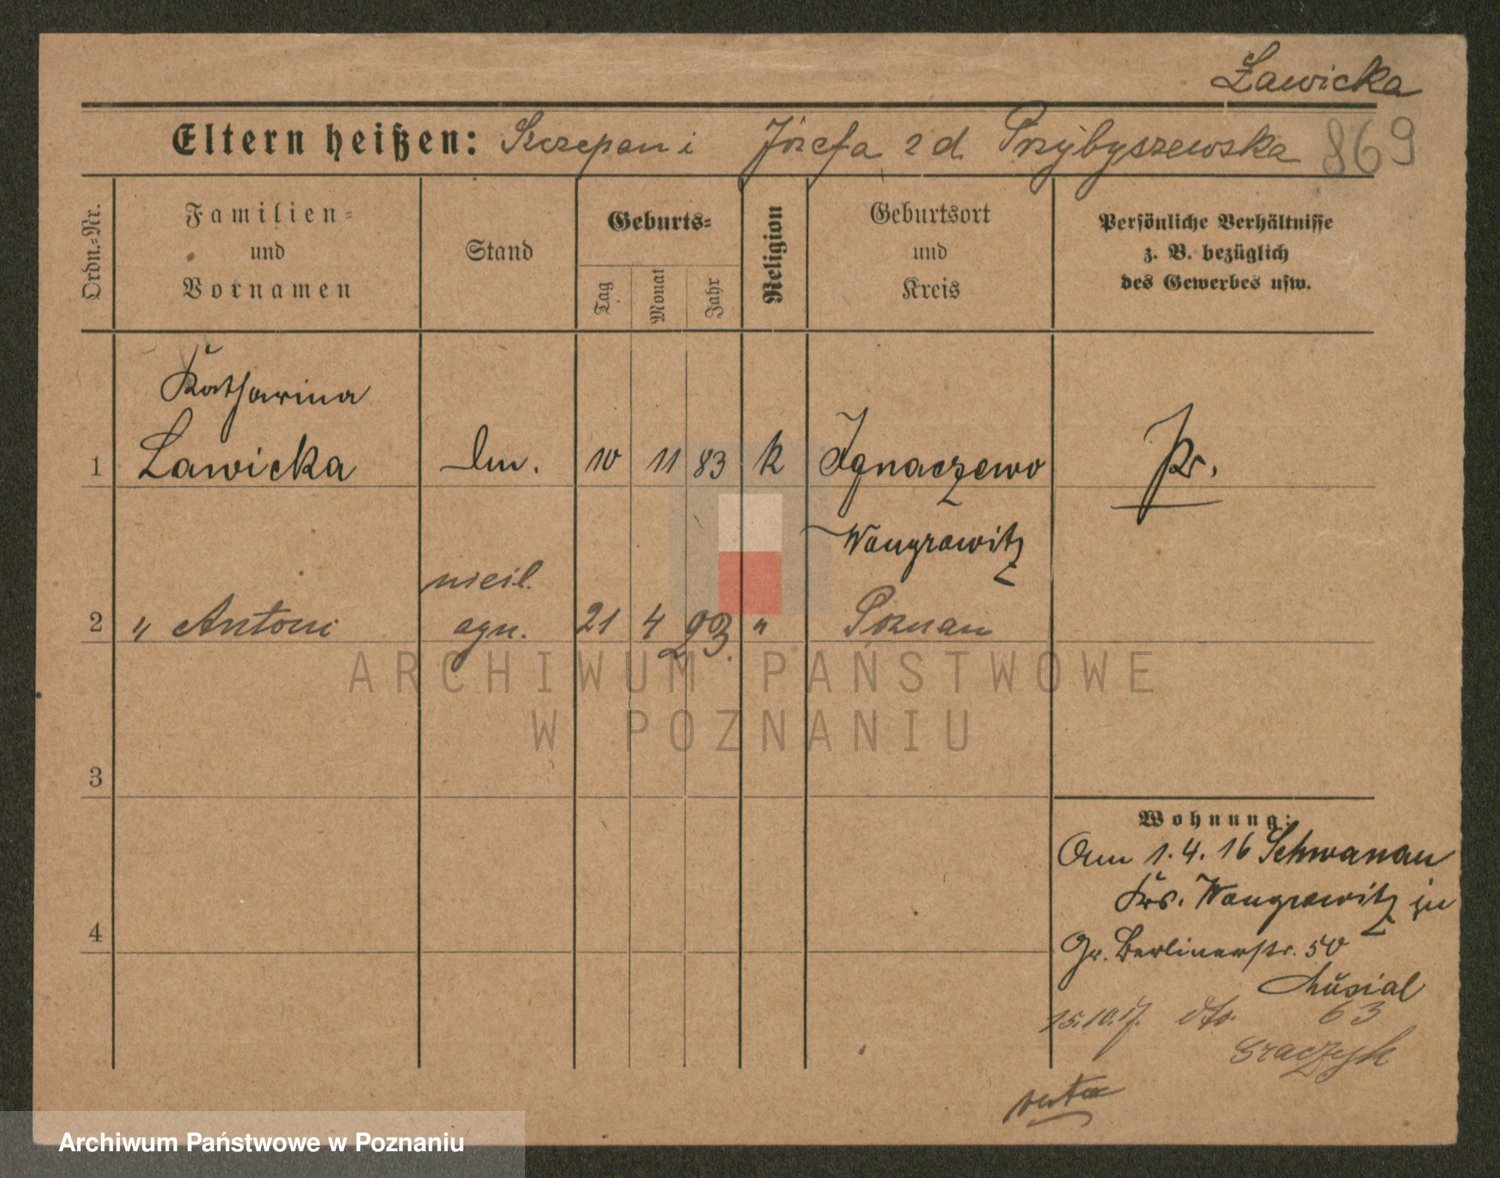 Ławicka
Eltern heißen: Szczepan i Józefa z d. Przybyszewska 869
Ordn.=Nr.
Familien=
und
Vornamen
Stand
Geburts=
Tag
Monat
Jahr
Religion
Geburtsort
und
Kreis
Persönliche Verhältnisse
z. B. bezüglich
des Gewerbes usw.
Katharina
1 Lawicka 10 11 83 k Ignaczewo Pr.
Wongrowitz
2 " Antoni 21 4 23. " Poznan
ARCHIWUM PAŃSTWOWE
W POZNANIU
3
4
Wohnung:
Am 1.4.16 Schwanau
Krs. Wongrowitz zu
Gr. Berlinerstr. 50
Musial
15.10.17. dto. 63
Graczyk
verte
Archiwum Państwowe w Poznaniu